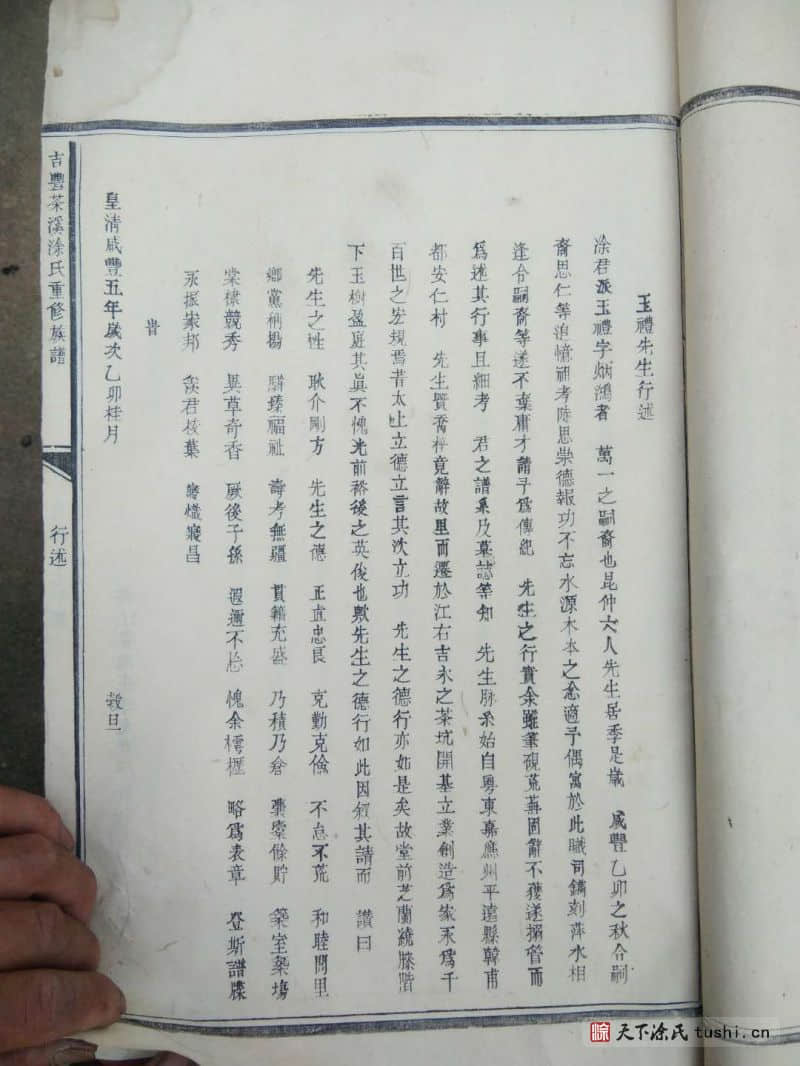 玉禮先生行述
涂君派玉禮字炳鴻者　萬一之嗣裔也昆仲六人先生居季是歲　咸豐乙卯之秋合嗣
裔思仁等追憶祖考時思崇德報功不忘水源木本之念適予偶寓於此職司鐫刻萍水相
逢合嗣裔等遂不棄庸才請予爲傳紀　先生之行實余雖筆硯荒蕪固辭不獲遂搦管而
爲述其行事且細考　君之譜系及墓誌等知　先生脉系始自粵東嘉應州平遠縣韓甫
都安仁村　先生暨喬梓竟辭故里而遷於江右吉永之茶坑開基立業創造爲家永爲千
百世之宏規焉昔太上立德立言其次立功　先生之德行亦如是矣故堂前芝蘭繞膝階
下玉樹盈庭其眞不愧光前裕後之英俊也敷先生之德行如此因叙其請而　讃曰
先生之性　耿介剛方　先生之德　正直忠良　克勤克儉　不怠不荒　和睦閭里
鄉黨稱揚　驎臻福祉　壽考無疆　貫籍充盛　乃積乃倉　囊橐餘貯　築室築塲
棠棣競秀　異草奇香　厥後子孫　遐邇不忘　愧余樗櫪　略爲表章　登斯譜牒
永振家邦　俟君枝葉　熾寢昌
旹
皇清咸豐五年歲次乙卯桂月　穀旦
吉豐茶溪涂氏重修族譜
行述
涂 天下涂氏 tushi.cn